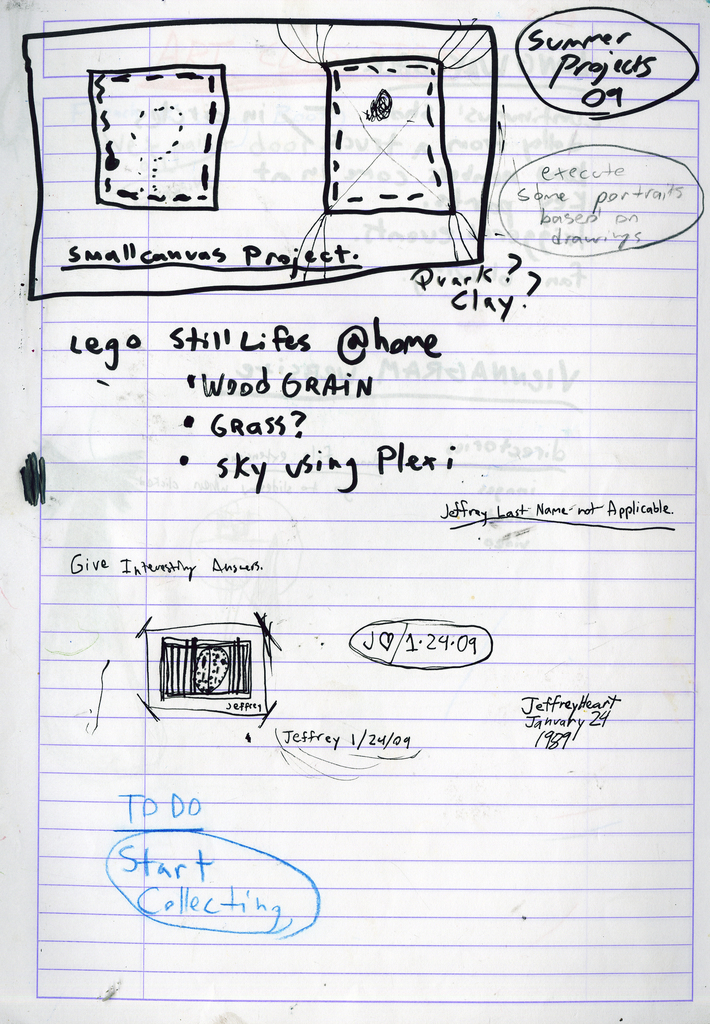 Summer
Projects
09
execute
some portraits
based on
drawings
Small canvas Project.
Quark?
Clay?
Lego Still Lifes @home
• WOOD GRAIN
• GRASS?
• SKY using Plexi
Jeffrey Last Name not Applicable.
Give Interesting Answers.
Jeffrey
J♡/1·24·09
Jeffrey 1/24/09
JeffreyHeart
January 24
1989
TO DO
Start
Collecting